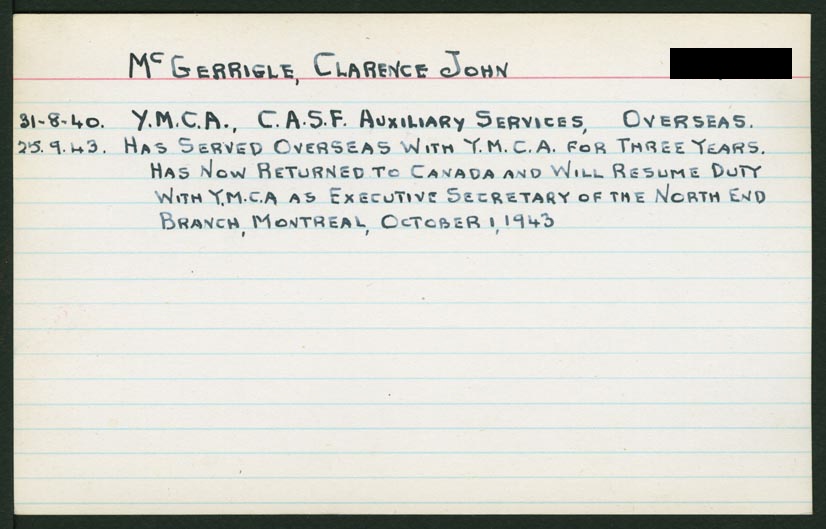 McGERRIGLE, CLARENCE JOHN
31-8-40. Y.M.C.A., C.A.S.F. AUXILIARY SERVICES, OVERSEAS.
25.9.43. HAS SERVED OVERSEAS WITH Y.M.C.A. FOR THREE YEARS.
HAS NOW RETURNED TO CANADA AND WILL RESUME DUTY
WITH Y.M.C.A AS EXECUTIVE SECRETARY OF THE NORTH END
BRANCH, MONTREAL, OCTOBER 1, 1943